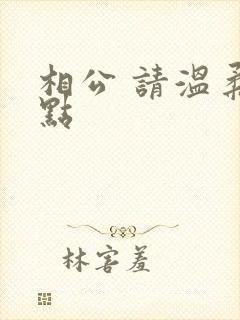 相公 請溫柔
點
林害羞